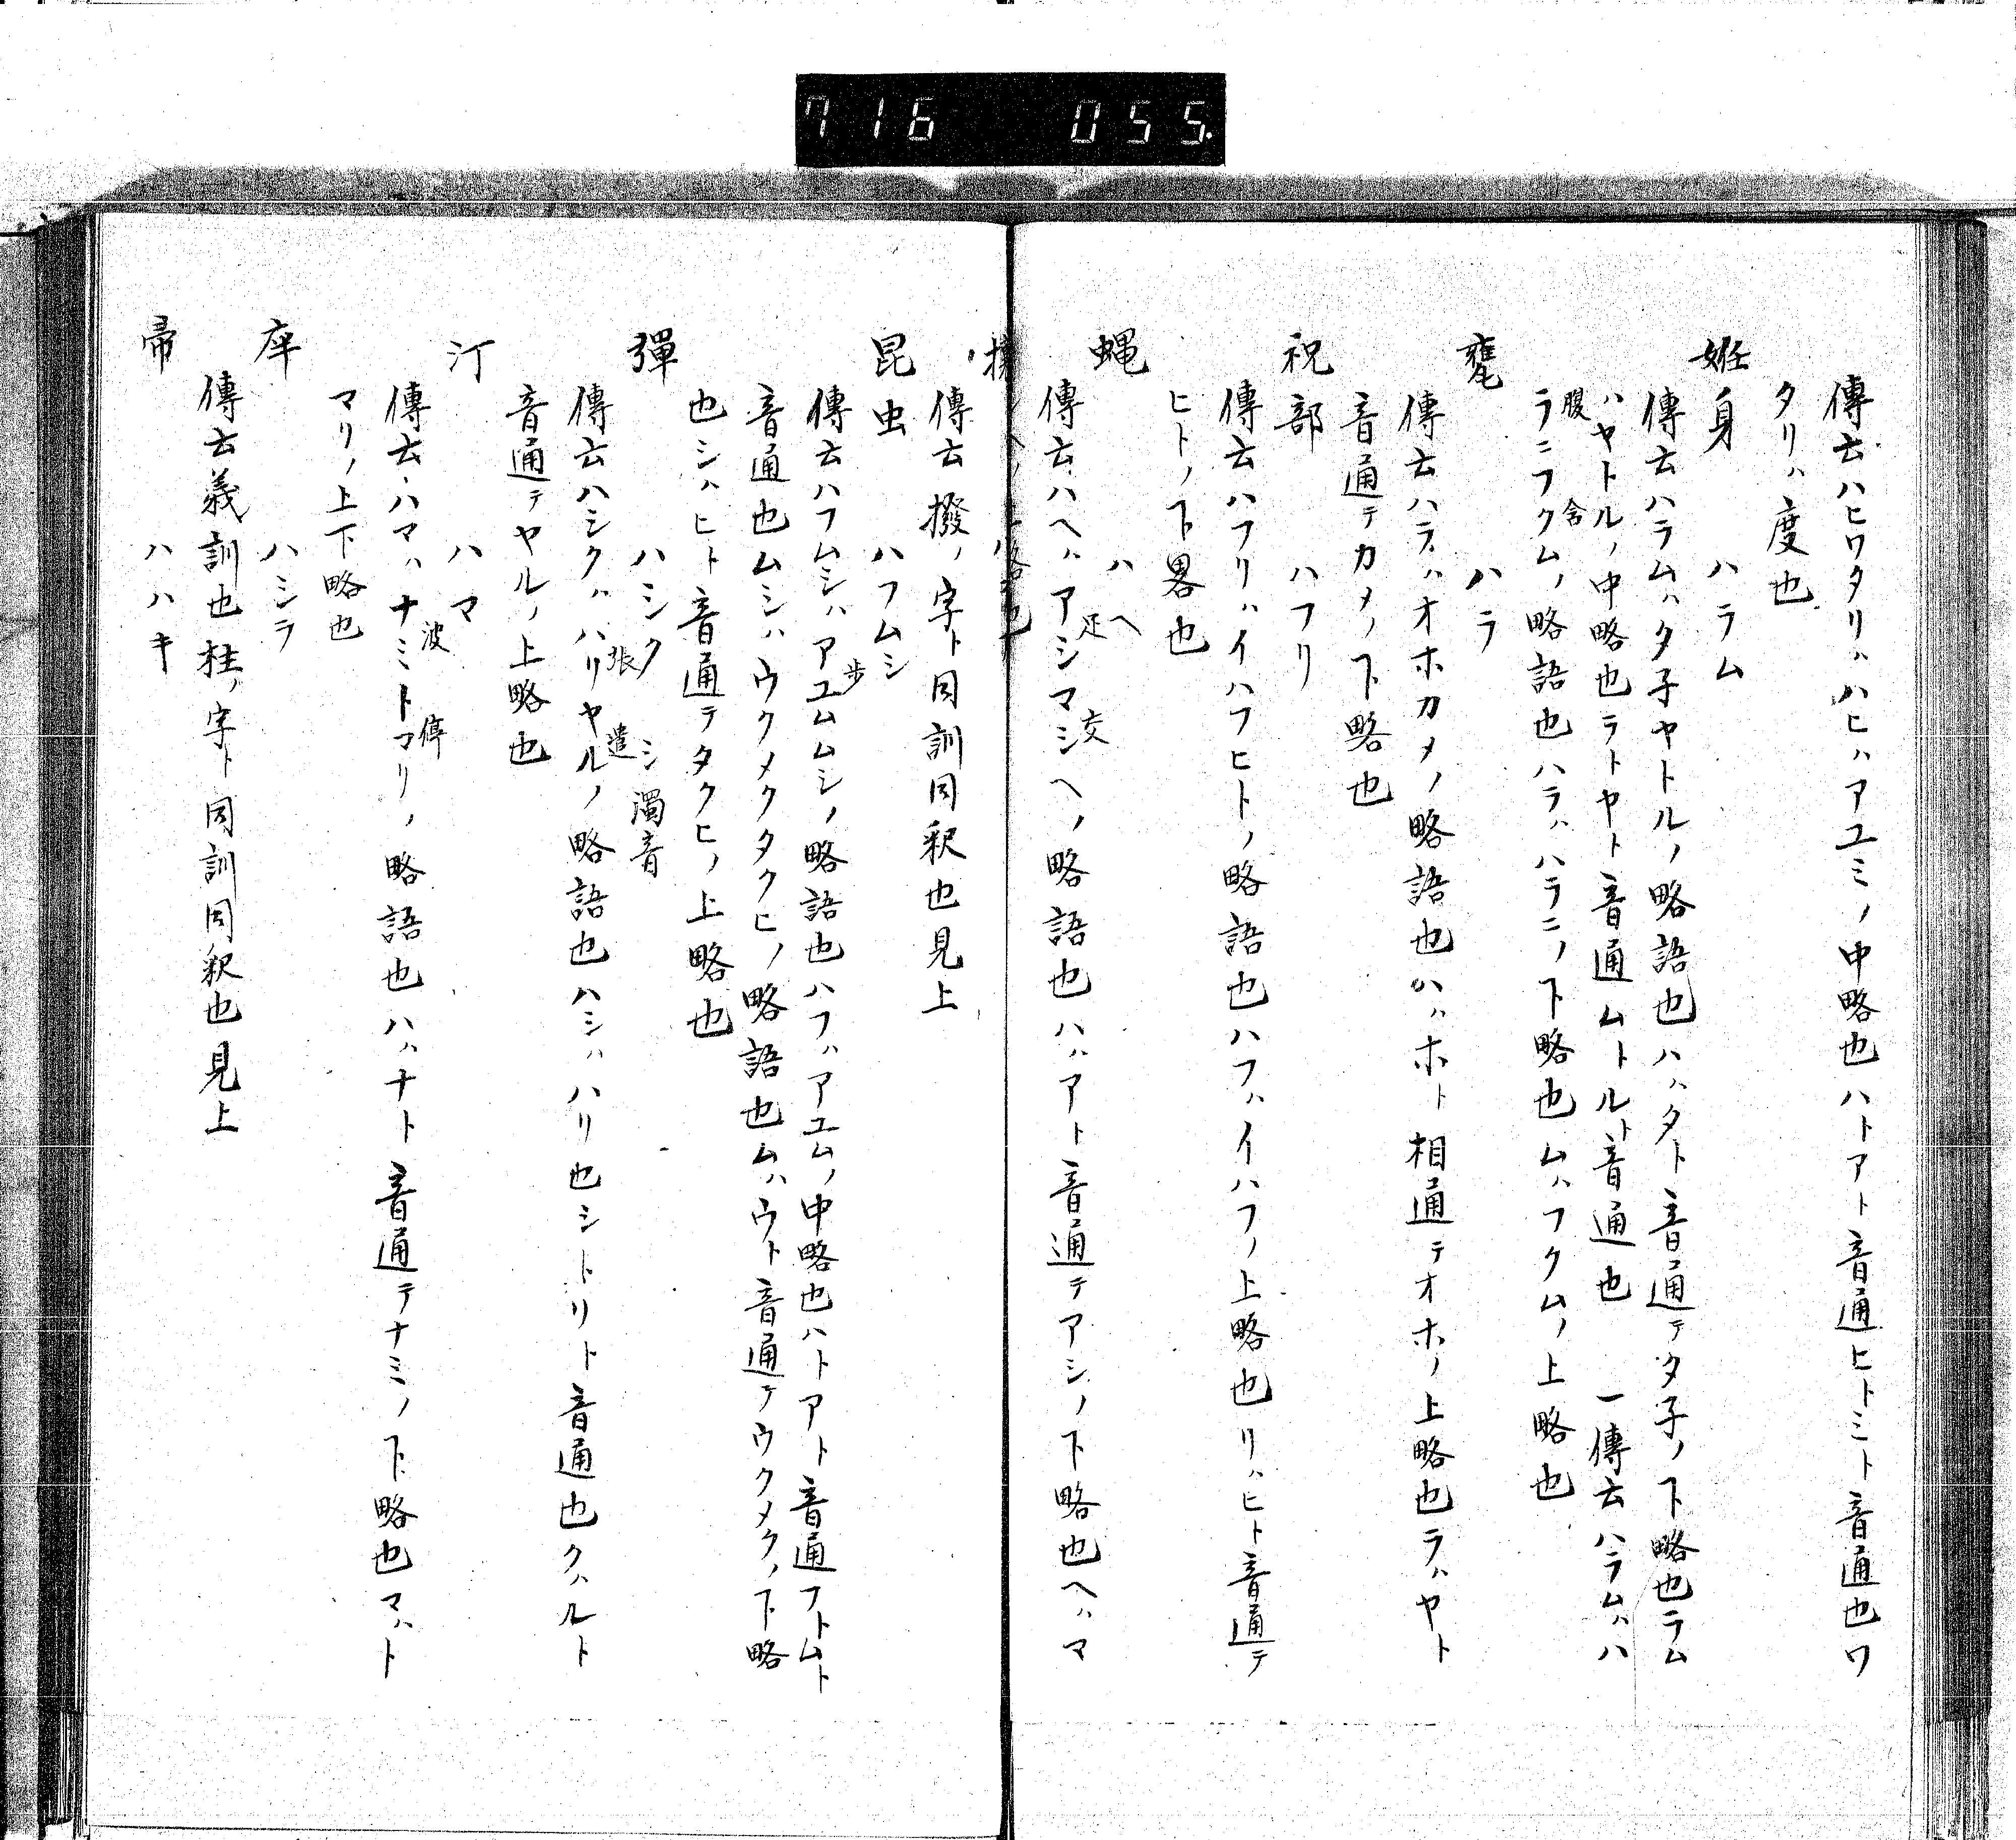 716 055.
傳云ハヒワタリハハヒハアユミノ中略也ハトアト音通ヒトミト音通也ワ
タリハ度也
姙身 ハラム
傳云ハラムハタ子ヤトルノ略語也ハハタト音通テタ子ノ下略也ラム
ハヤトルノ中略也ラトヤト音通ムトルト音通也 一傳云ハラムハハ
腹 含
ラニフクムノ略語也ハラハハラニノ下略也ムハフクムノ上略也
甕 ハラ
傳云ハラハオホカメノ略語也ハハホト相通テオホノ上略也ラハヤト
音通テカメノ下略也
祝部 ハフリ
傳云ハフリハイハフヒトノ略語也ハフハイハフノ上略也リハヒト音通テ
ヒトノ下畧也
蝿 ハヘ
足 交
傳云ハヘハアシマシヘノ略語也ハハアト音通テアシノ下略也ヘハマ
傳云撥ノ字ト同訓同釈也見上
昆虫 ハフムシ
歩
傳云ハフムシハアユムムシノ略語也ハフハアユムノ中略也ハトアト音通フトムト
音通也ムシハウクメクタクヒノ略語也ムハウト音通テウクメクノ下略
也シハヒト音通テタクヒノ上略也
彈 ハシク シ濁音
張 遣
傳云ハシクハハリヤルノ略語也ハシハハリ也シトリト音通也クハルト
音通テヤルノ上略也
汀 ハマ
波 停
傳云ハマハナミトマリノ略語也ハハナト音通テナミノ下略也マハト
マリノ上下略也
ハシラ
傳云義訓也柱ノ字ト同訓同釈也見上
帚 ハハキ